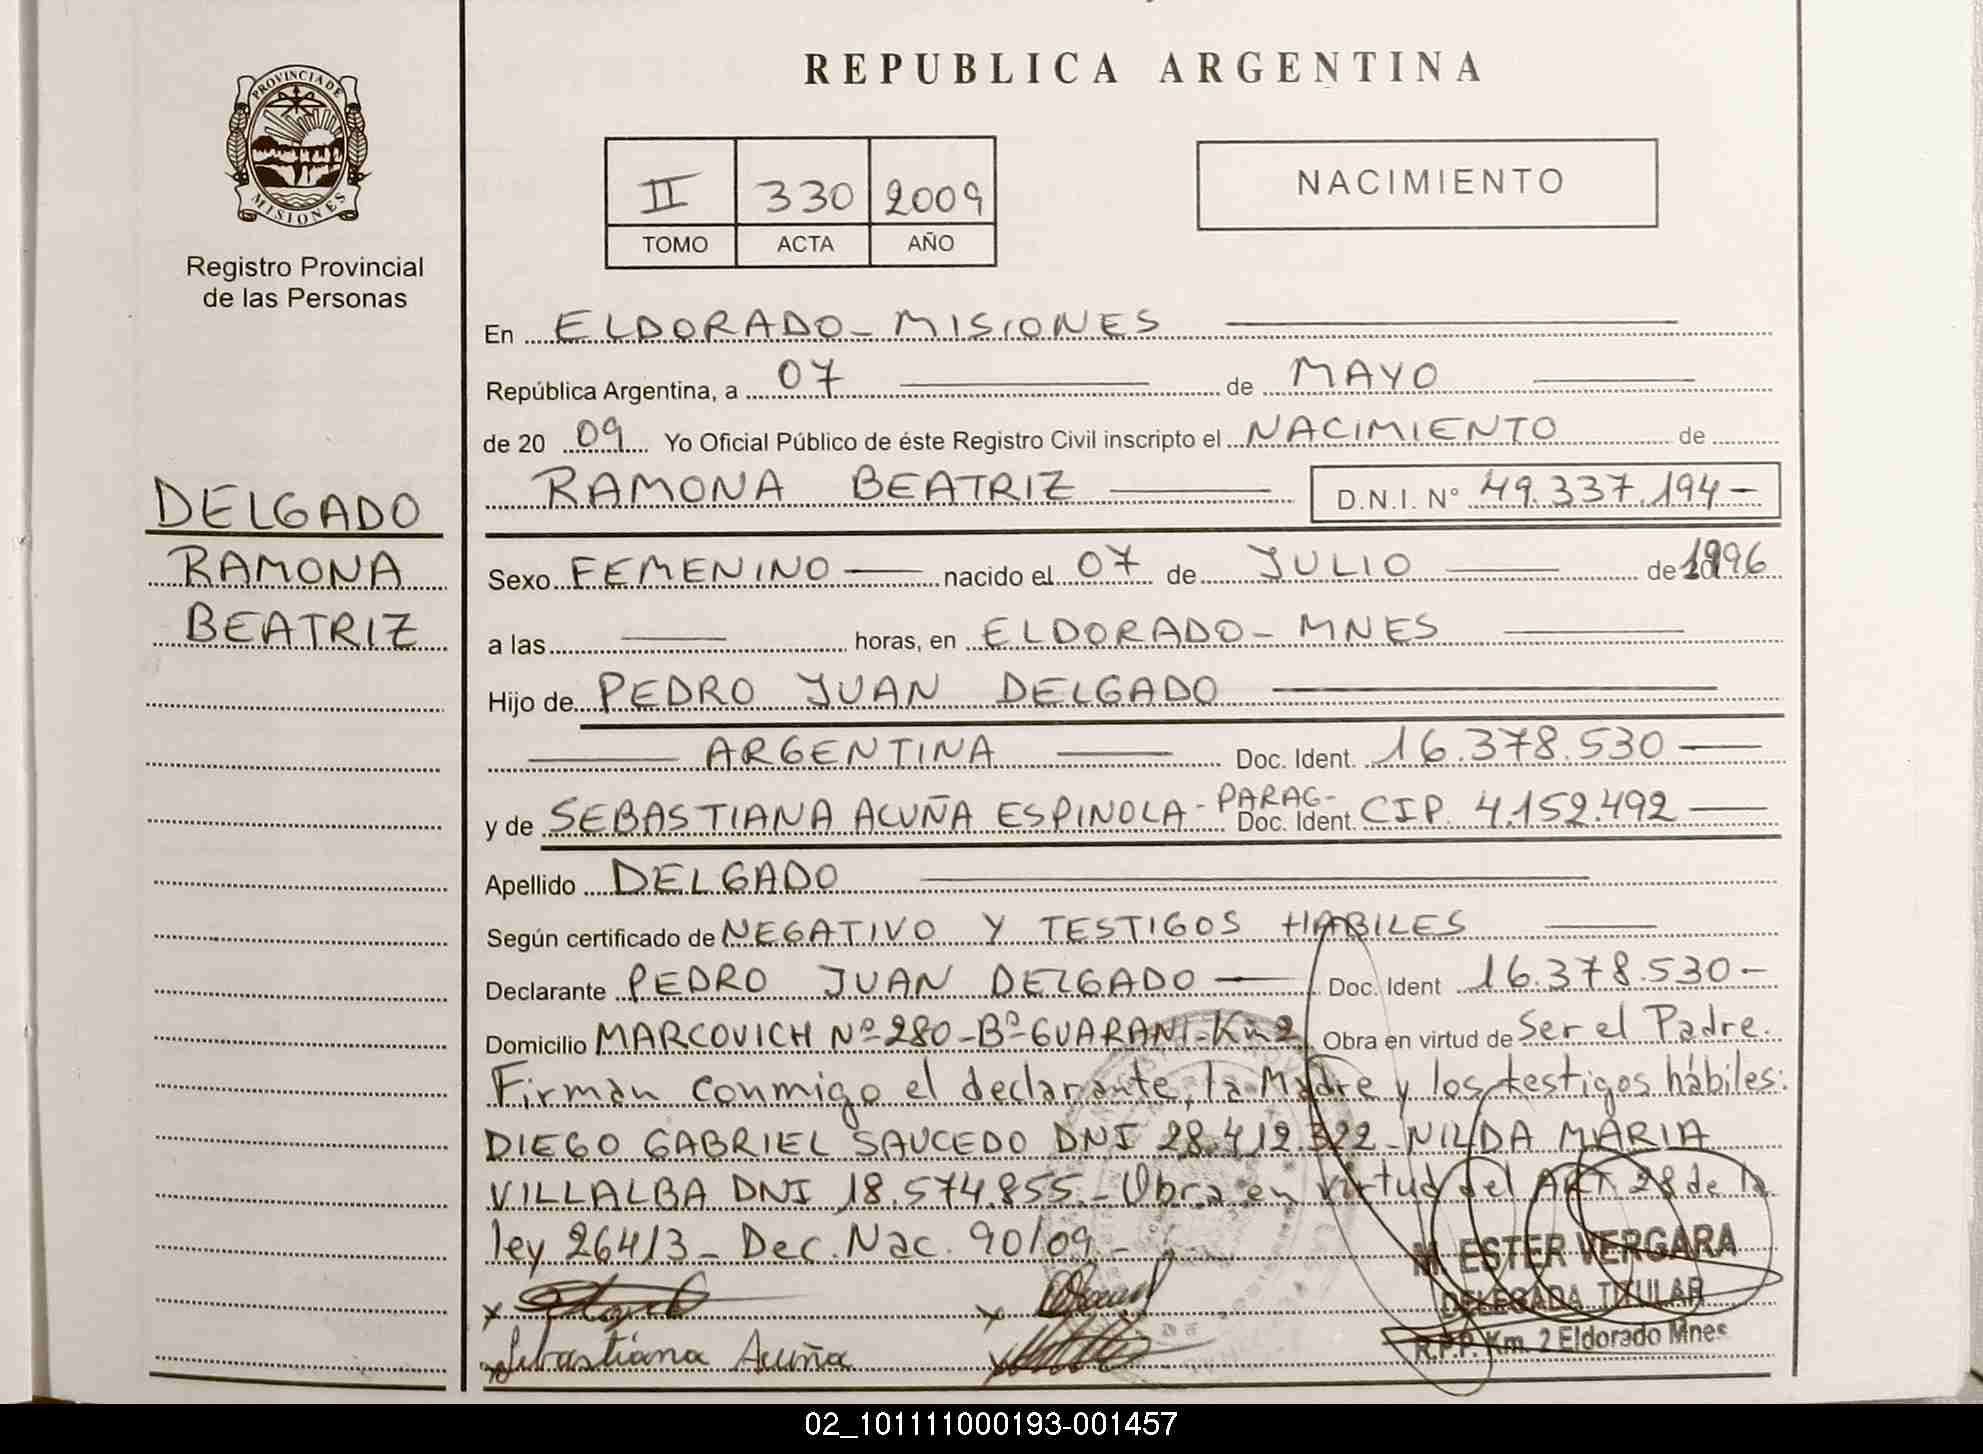 REPUBLICA ARGENTINA
PROVINCIA DE
MISIONES
Registro Provincial
de las Personas
II 330 2009
TOMO ACTA AÑO
NACIMIENTO
DELGADO
RAMONA
BEATRIZ
En ELDORADO - MISIONES
República Argentina, a 07 de MAYO
de 20 09 Yo Oficial Público de éste Registro Civil inscripto el NACIMIENTO de
RAMONA BEATRIZ D.N.I. Nº 49.337.194 -
Sexo FEMENINO nacido el 07 de JULIO de 1996
a las horas, en ELDORADO - MNES
Hijo de PEDRO JUAN DELGADO
ARGENTINA Doc. Ident. 16.378.530
y de SEBASTIANA ACUÑA ESPINOLA - PARAG - Doc. Ident. CIP. 4.152.492
Apellido DELGADO
Según certificado de NEGATIVO Y TESTIGOS HABILES
Declarante PEDRO JUAN DELGADO Doc. Ident 16.378.530 -
Domicilio MARCOVICH Nº 280 - Bº GUARANI - Km 2 Obra en virtud de Ser el Padre.
Firman conmigo el declarante, la Madre y los testigos hábiles:
DIEGO GABRIEL SAUCEDO DNI 28.412.322 - NILDA MARIA
VILLALBA DNI 18.574.855. - Obra en virtud del ART. 28 de la
ley 26413 - Dec. Nac. 90/09 -
M. ESTER VERGARA
DELEGADA TITULAR
R.P.P. Km. 2 Eldorado Mnes
x x
Sebastiana Acuña
02_101111000193-001457